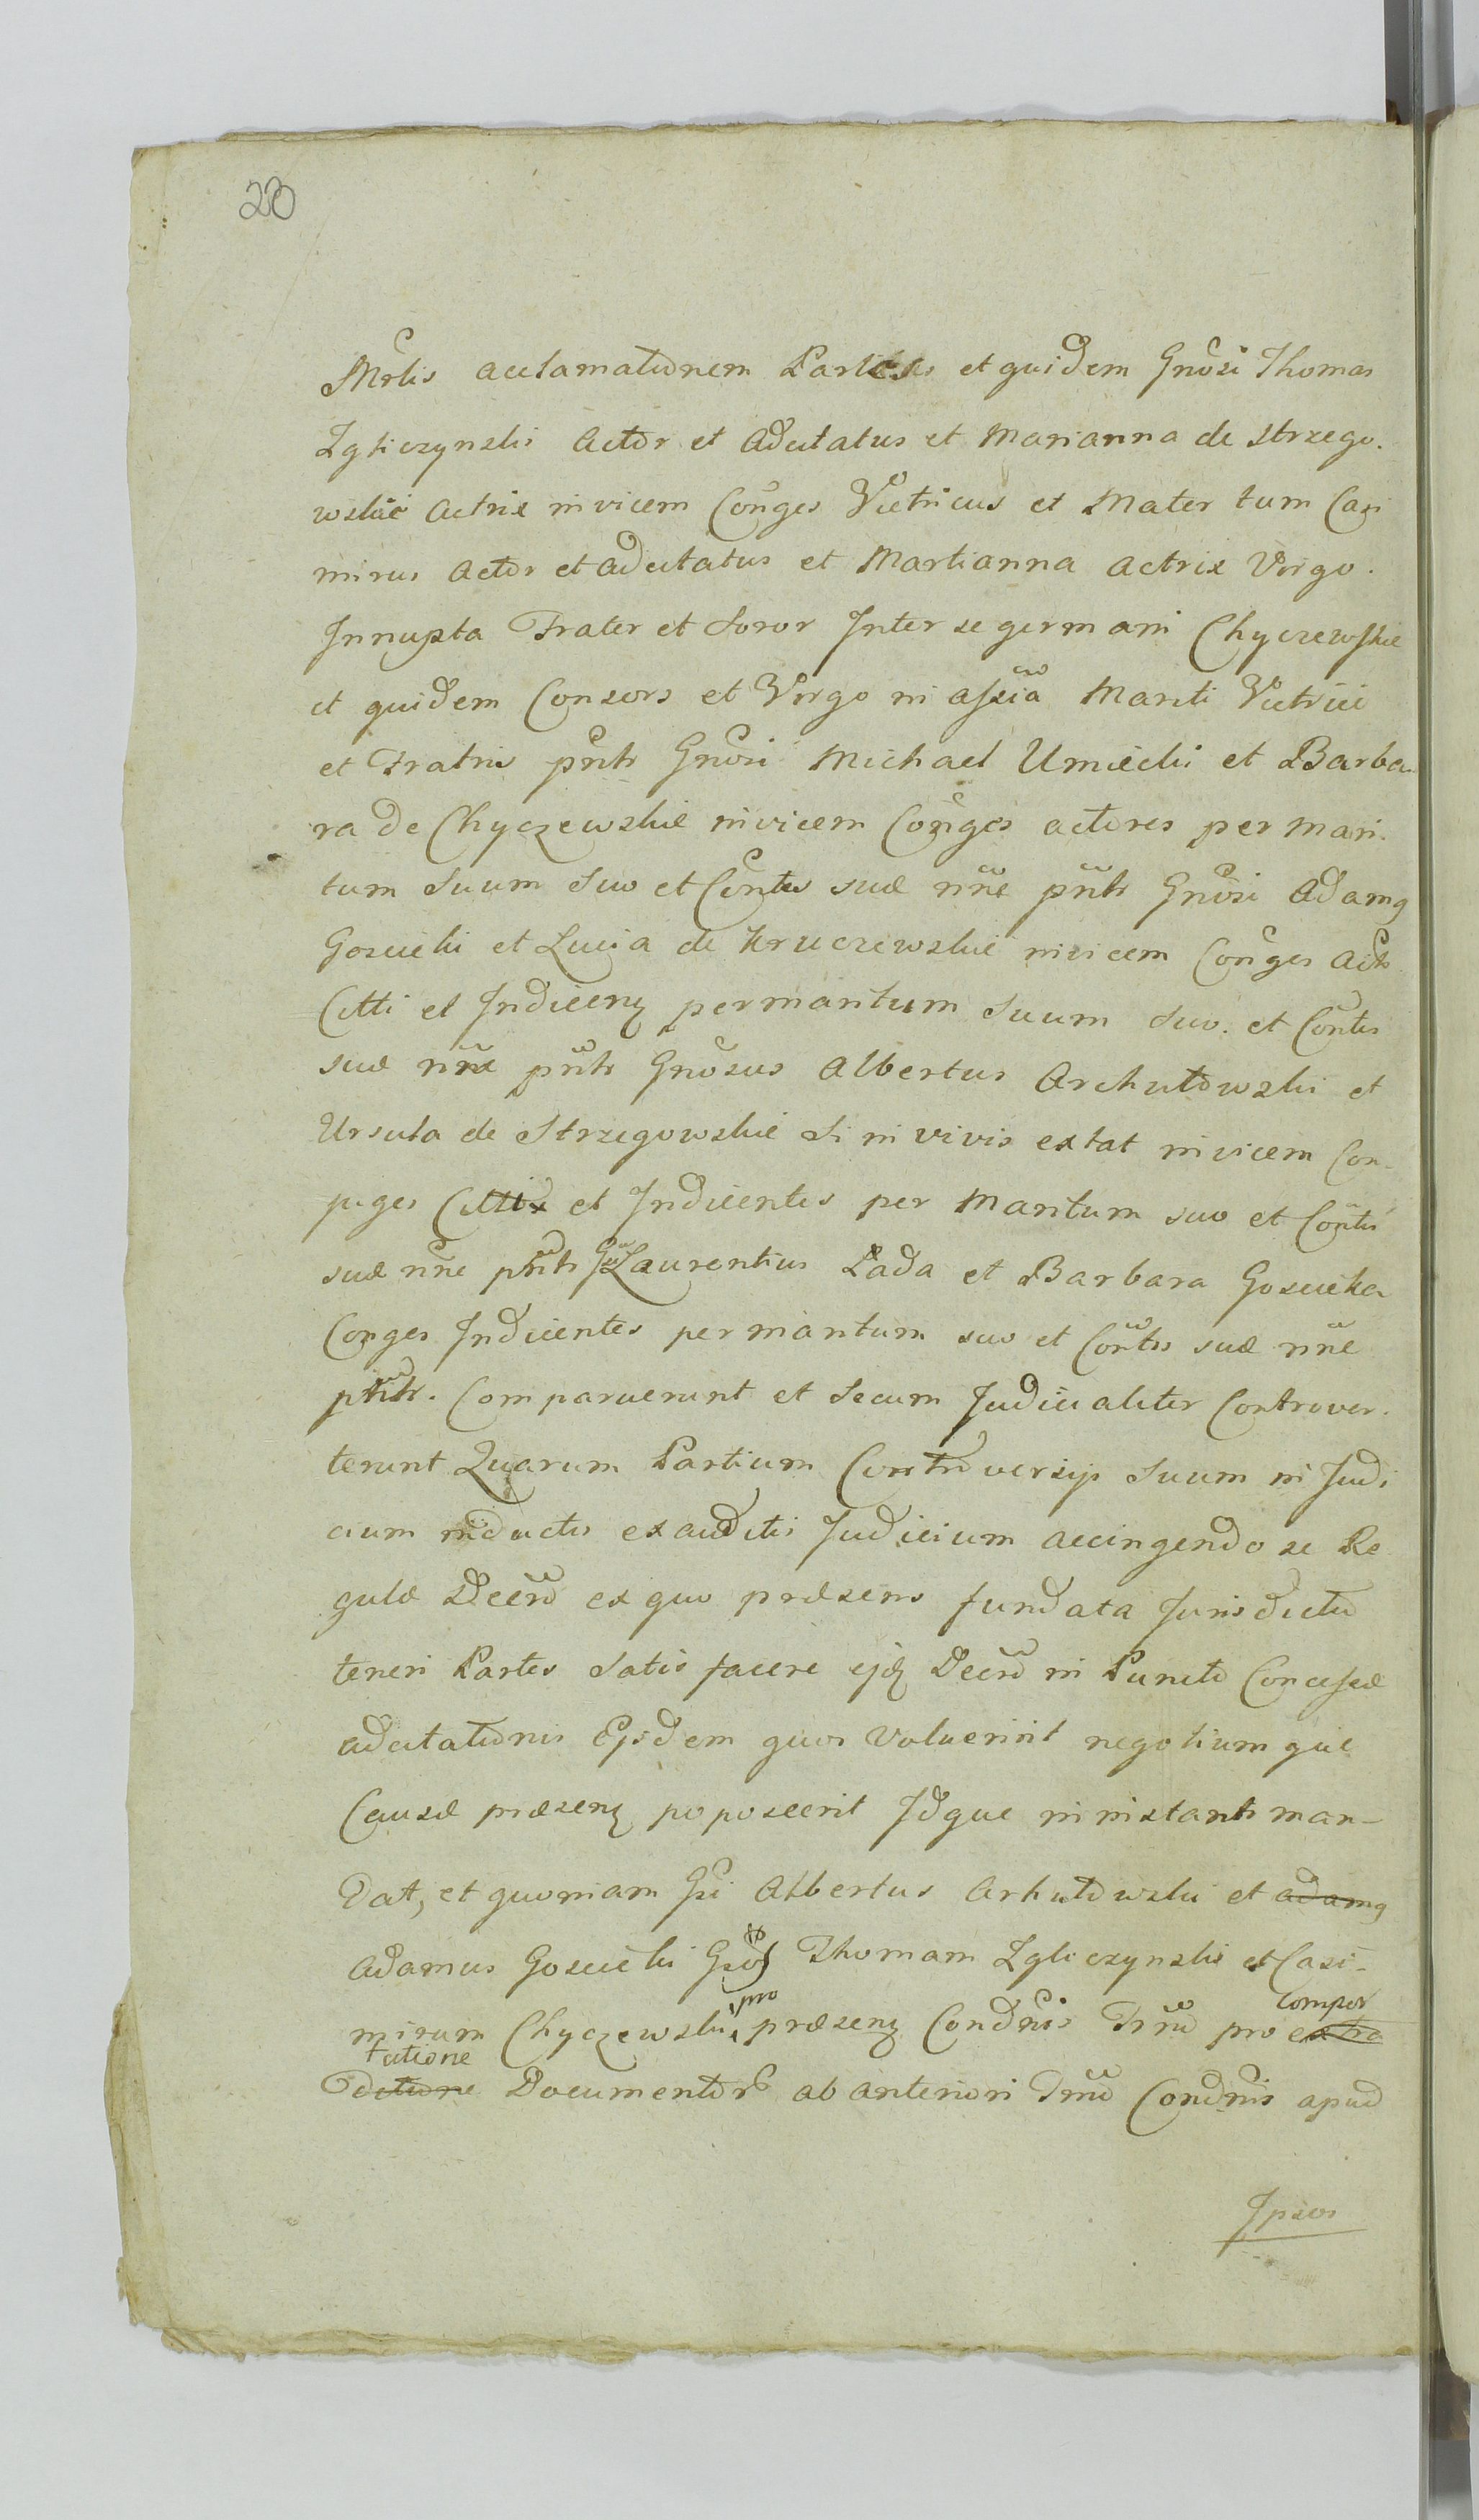 20
Mrlis acclamationem Partes et quidem Gnosi Thomas
Zgliczynski Actor et Adcitatus et Marianna de Strzego.
wskie Actrix invicem Conges Vitricus et Mater tum Casi
mirus Actor et adcitatus et Martianna actrix Virgo.
Innupta Frater et Soror Inter se germani Chyczewskie
et quidem Consors et Virgo in assia Mariti Vitrici
et Fratris pnts Gnosi Michael Umiecki et Barba
ra de Chyczewskie invicem Conges actores per mari.
tum Suum Suo et Contis suæ nne pnts Gnosi Adamq
Goscicki et Lucia de Kruczewskie invicem Conges Acts
Citti et Indicenq per maritum Suum Suo. et Contis
suæ nne pnts Gnosus Albertus Archutowski et
Ursula de Strzegowskie Si in vivis extat invicem Con-
juges Citti et Indicentes per Maritum suo et Contis
suæ nne pnts Gn Laurentius Lada et Barbara Goscicka
Conges Indicentes per maritum suo et Contis suæ nne
pnts. Comparuerunt et Secum Judicialiter Controver.
terunt Quarum Partium Controversijs Suum in Judi
cium inductis exauditis Judicium accingendo se Re
gulæ Decrti ex quo præsens fundata Jurisdictio
teneri Partes Satis facere ejq Decrto in Puncto Concessæ
adcitationis Ejsdem quos Voluerint negotium que
Causæ præsenq poposcerit Idque in instanti man-
dat, et quoniam Gsi Albertus Arhutowski et adamq
Adamus Goscicki Gsos Thomam Zgliczynski et Casi-
mirum Chyczewski, pro præsenq Condnis Trno pro extra compor
ditione tatione Documentor ab anteriori Trno Condnis apud
Ipsos